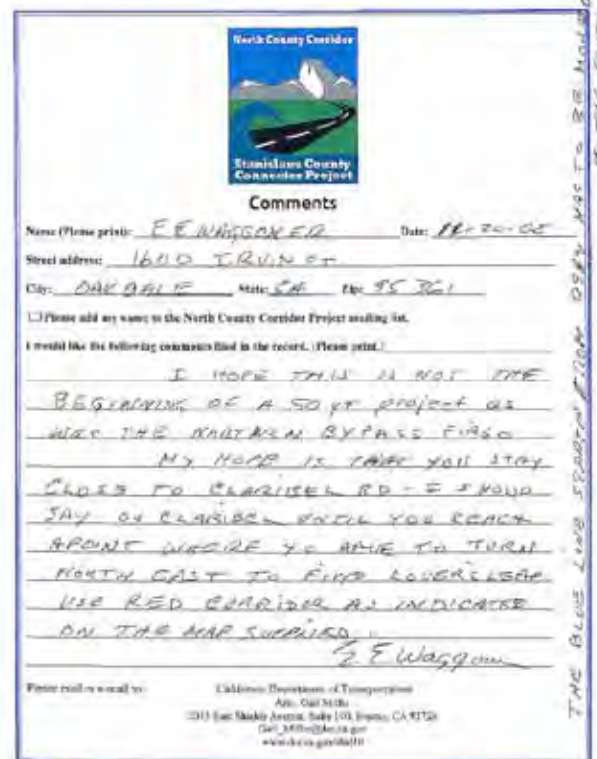 North County Corridor
Stanislaus County
Connector Project
Comments
Name (Please print): E E WAGGONER Date:
Street address: 1600 IRVIN ST
City: OAKDALE State: CA Zip: 95361
Please add my name to the North County Corridor Project mailing list.
I would like the following comments filed in the record. (Please print.)
I HOPE THIS IS NOT THE
BEGINNING OF A 50 yr project as
WAS THE BYPASS
MY HOPE IS THAT YOU STAY
CLOSE TO CLARIBEL RD - I SHOUD
SAY ON CLARIBEL UNTIL YOU REACH
APOINT WHERE YO HAVE TO TURN
NORTH EAST TO FIND LOVERS LEAP
USE RED CORRIDOR AS INDICATE
ON THE MAP SUPPLIED.
E E Waggoner
Please mail or e-mail to: California Department of Transportation
Attn: Gail Miller
2015 East Shields Avenue, Suite 100, Fresno, CA 93726
THE BLUE LINE HAS TO BE